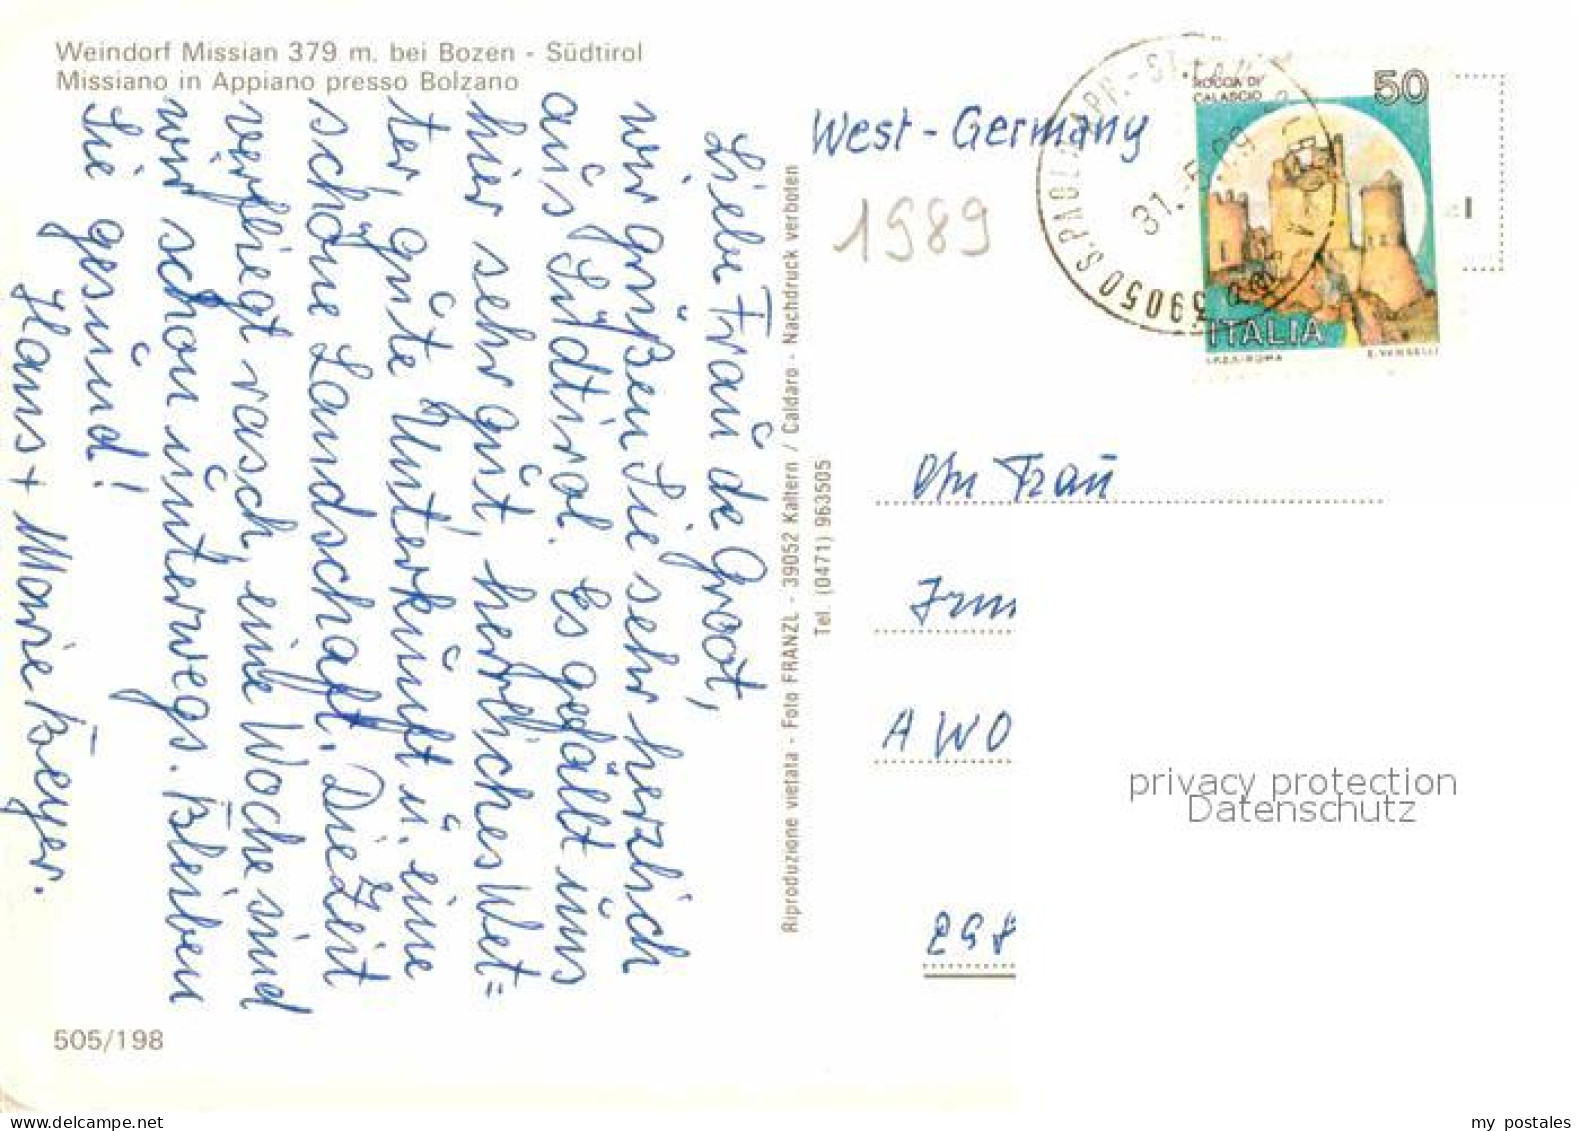 Weindorf Missian 379 m. bei Bozen - Südtirol
Missiano in Appiano presso Bolzano
Liebe Frau de Groot,
wir grüßen Sie sehr herzlich
aus Südtirol. Es gefällt uns
hier sehr gut, herrliches Wet=
ter, gute Unterkunft u. eine
schöne Landschaft. Die Zeit
verfliegt rasch, eine Woche sind
wir schon unterwegs. Bleiben
Sie gesund!
Hans + Marie Beyer.
505/198
Riproduzione vietata - Foto FRANZL - 39052 Kaltern / Caldaro - Nachdruck verboten
Tel. (0471) 963505
West-Germany
1989
39050 S. PAOLO
31.-5.
ROCCA DI
CALASCIO
50
ITALIA
I.P.Z.S.-ROMA
E. VANGELLI
Frau
Irm
AWO
privacy protection
Datenschutz
my postales